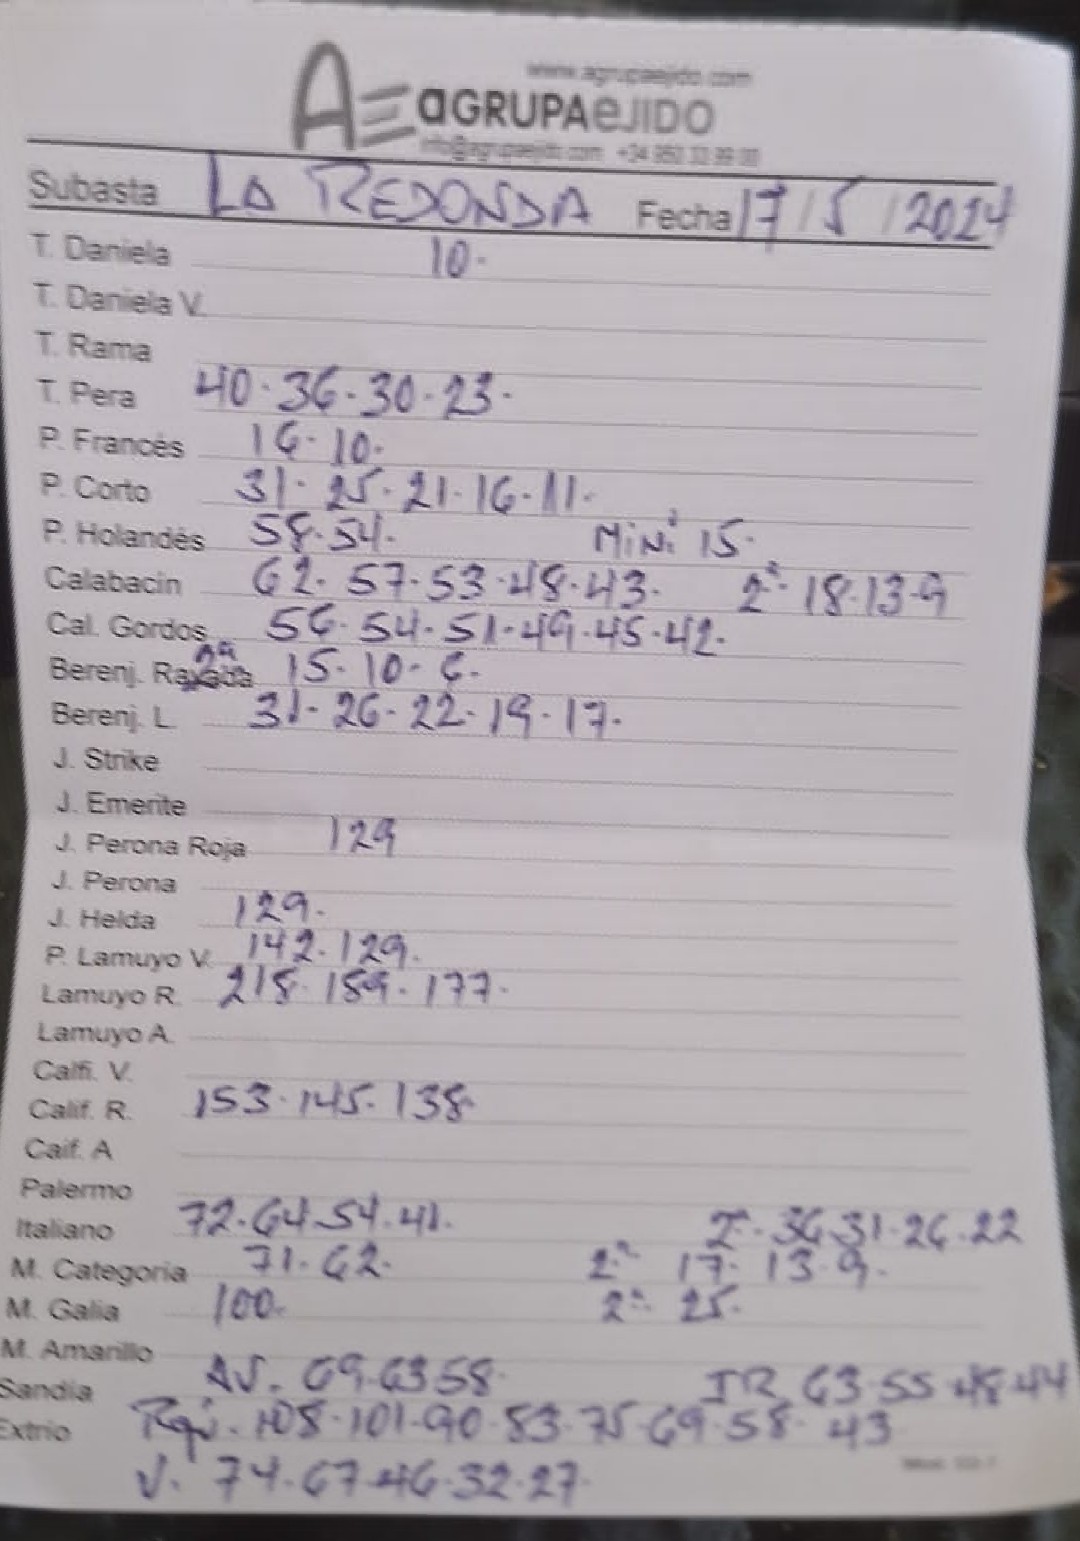 www.agrupaejido.com
AE aGRUPAeJIDO
info@agrupaejido.com +34 950 33 99 00
Subasta LA REDONDA Fecha 17/5/2024
T. Daniela 10.
T. Daniela V.
T. Rama
T. Pera 40.36.30.23.
P. Francés 16.10.
P. Corto 31.25.21.16.11.
P. Holandés 58.54. MiNi 15.
Calabacin 62.57.53.48.43. 2ª.18.13.9
Cal. Gordos 56.54.51.49.45.42.
Berenj. Rayada 2ª 15.10.6.
Berenj. L. 31.26.22.19.17.
J. Strike
J. Emerite
J. Perona Roja 129
J. Perona
J. Helda 129.
P. Lamuyo V. 142.129.
Lamuyo R. 218.189.177.
Lamuyo A.
Calfi. V.
Calif. R. 153.145.138.
Caif. A
Palermo
Italiano 72.64.54.41. 2ª.36.31.26.22
M. Categoria 71.62. 2ª 17.13.9.
M. Galia 100. 2ª. 25.
M. Amarillo
Sandia 69.63.58. 63.55.48.44
Extrio 108.101.90.83.75.69.58.43
V. 74.67.46.32.27.